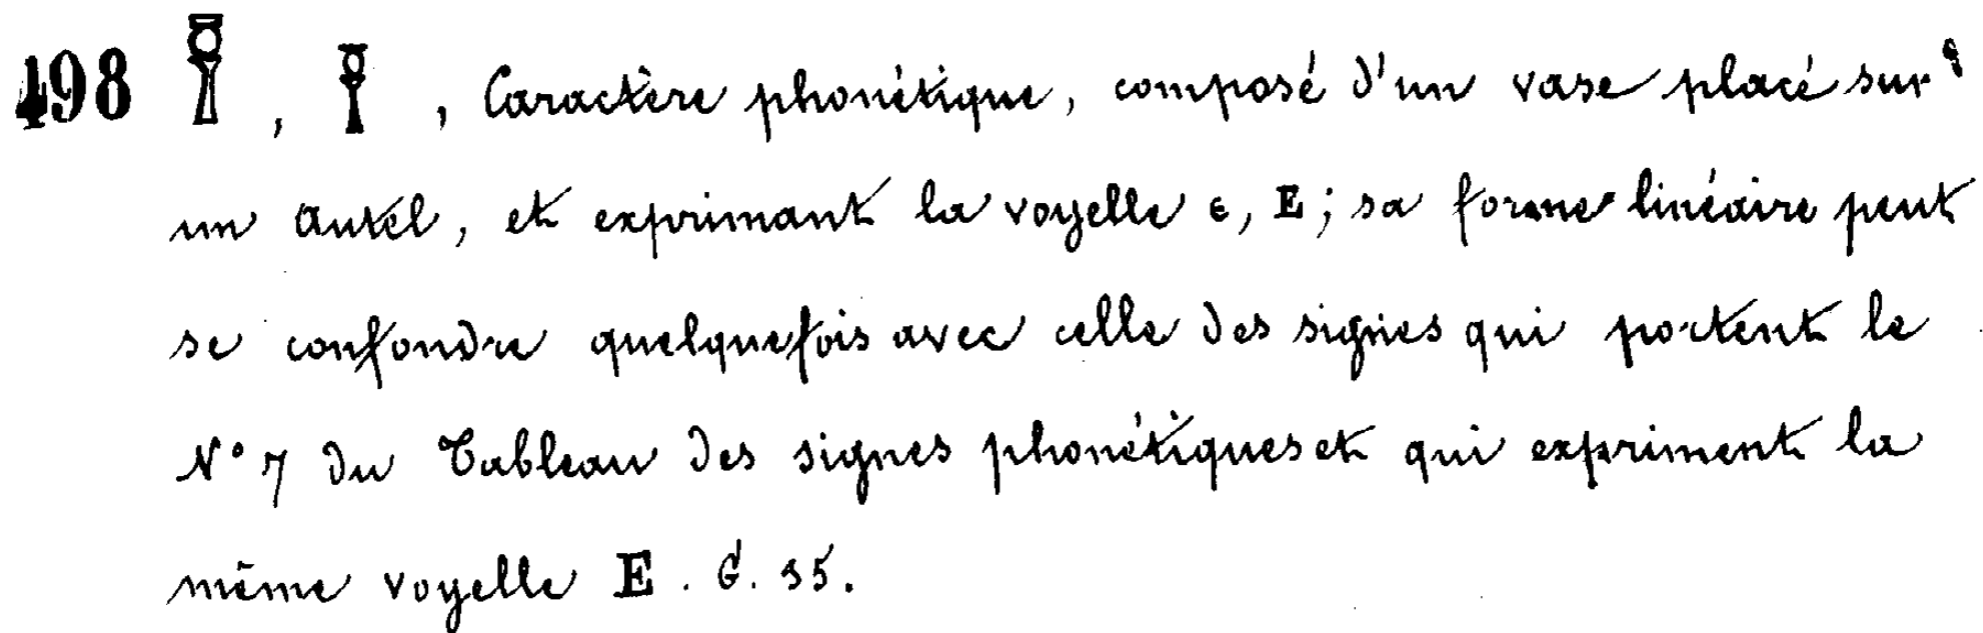 498 , , Caractère phonétique, composé d'un vase placé sur
un Autel, et exprimant la voyelle ε, E; sa forme linéaire peut
se confondre quelquefois avec celle des signes qui portent le
N° 7 du Tableau des signes phonétiques et qui expriment la
même voyelle E. G. 35.